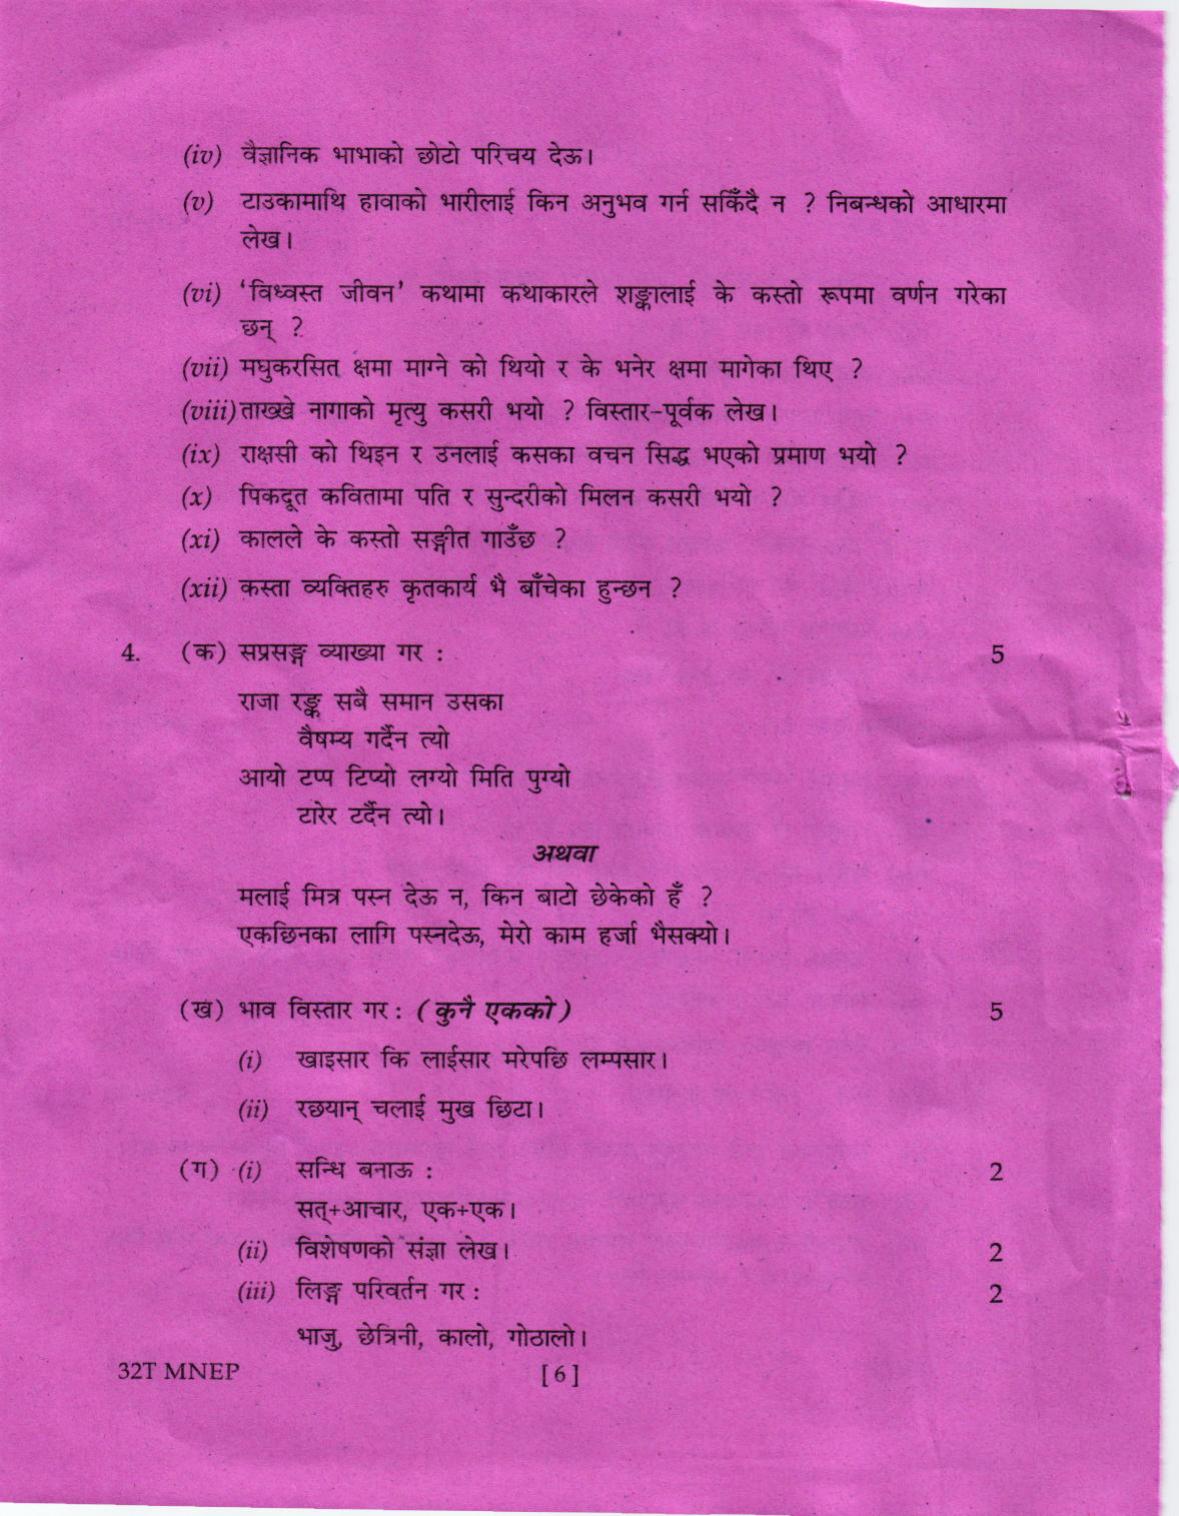 (iv) वैज्ञानिक भाभाको छोटो परिचय देऊ।
(v) टाउकामाथि हावाको भारीलाई किन अनुभव गर्न सकिँदै न ? निबन्धको आधारमा
लेख।
(vi) ‘विध्वस्त जीवन’ कथामा कथाकारले शङ्कालाई के कस्तो रूपमा वर्णन गरेका
छन् ?
(vii) मघुकरसित क्षमा माग्ने को थियो र के भनेर क्षमा मागेका थिए ?
(viii) ताख्खे नागाको मृत्यु कसरी भयो ? विस्तार-पूर्वक लेख।
(ix) राक्षसी को थिइन र उनलाई कसका वचन सिद्ध भएको प्रमाण भयो ?
(x) पिकदूत कवितामा पति र सुन्दरीको मिलन कसरी भयो ?
(xi) कालले के कस्तो सङ्गीत गाउँछ ?
(xii) कस्ता व्यक्तिहरु कृतकार्य भै बाँचेका हुन्छन ?
4. (क) सप्रसङ्ग व्याख्या गर : 5
राजा रङ्क सबै समान उसका
वैषम्य गर्दैन त्यो
आयो टप्प टिप्यो लग्यो मिति पुग्यो
टारेर टर्दैन त्यो।
अथवा
मलाई मित्र पस्न देऊ न, किन बाटो छेकेको हँ ?
एकछिनका लागि पस्नदेऊ, मेरो काम हर्जा भैसक्यो।
(ख) भाव विस्तार गर : (कुनै एकको) 5
(i) खाइसार कि लाईसार मरेपछि लम्पसार।
(ii) रछयान् चलाई मुख छिटा।
(ग) (i) सन्धि बनाऊ : 2
सत्+आचार, एक+एक।
(ii) विशेषणको संज्ञा लेख। 2
(iii) लिङ्ग परिवर्तन गर : 2
भाजु, छेत्रिनी, कालो, गोठालो।
32T MNEP [6]